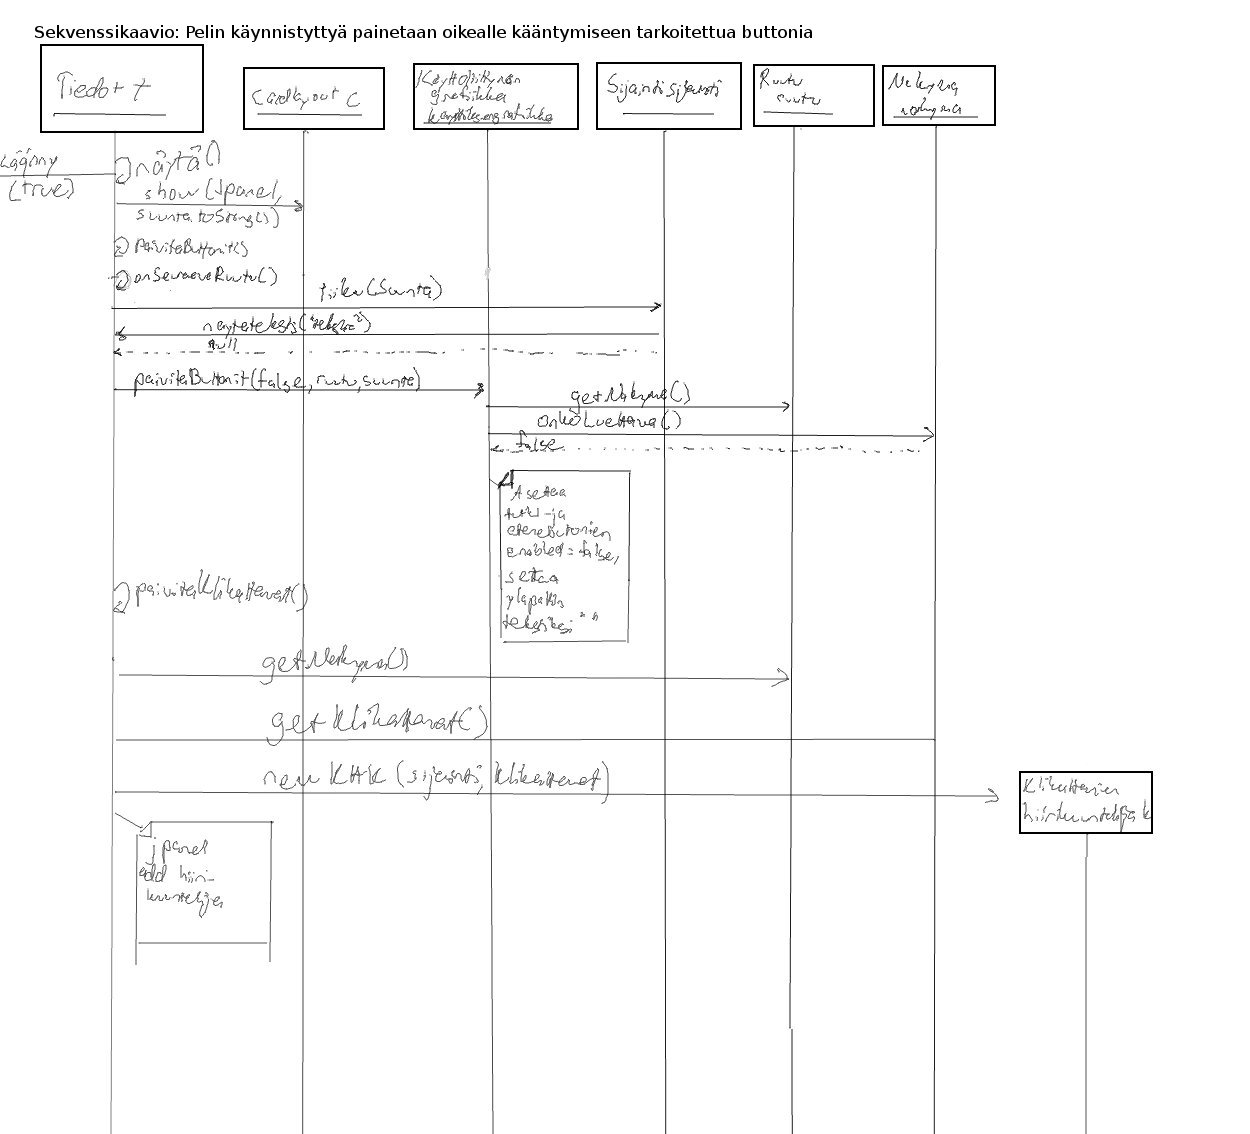 Sekvenssikaavio: Pelin käynnistyttyä painetaan oikealle kääntymiseen tarkoitettua buttonia
Tiedot t
Cardlayout c
Käyttöliittymän
grafiikka
Sijainti sijainti
Ruutu
ruutu
Näkymä
näkymä
käänny
(true)
näytä()
show(Jpanel,
suunta.toString())
päivitäButtonit()
onSeuraavaRuutu()
liiku(Suunta)
näytäteksti(
null
päivitäButtonit(false, ruutu, suunta)
getNäkymä()
onkoLuettava()
false
Asettaa
tutki-ja
etenebuttonien
enabled = false,
settaa
yläpalkin
tekstiksi " "
päivitäKlikattavat()
getNäkymä()
getKlikattavat()
new KHK (sijainti, klikattavat)
Klikattavien
hiirikuuntelija k
jpanel
add hiiri-
kuuntelija